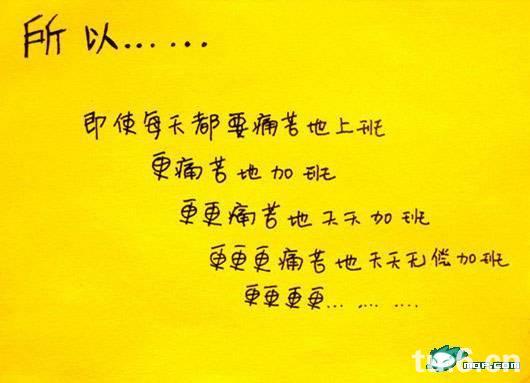 所以……
即使每天都要痛苦地上班
更痛苦地加班
更更痛苦地天天加班
更更更痛苦地天天无偿加班
更更更更… … …
MOP.COM